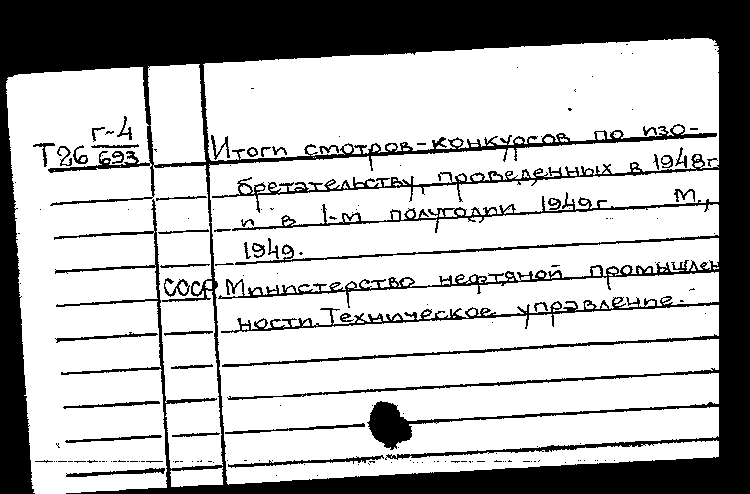 Г-4
Т26 693 Итоги смотров-конкурсов по изо-
бретательству, проведенных в 1948г
и в 1-м полугодии 1949г. М.,
1949.
СССР. Министерство нефтяной промышлен
ности. Техническое управление.